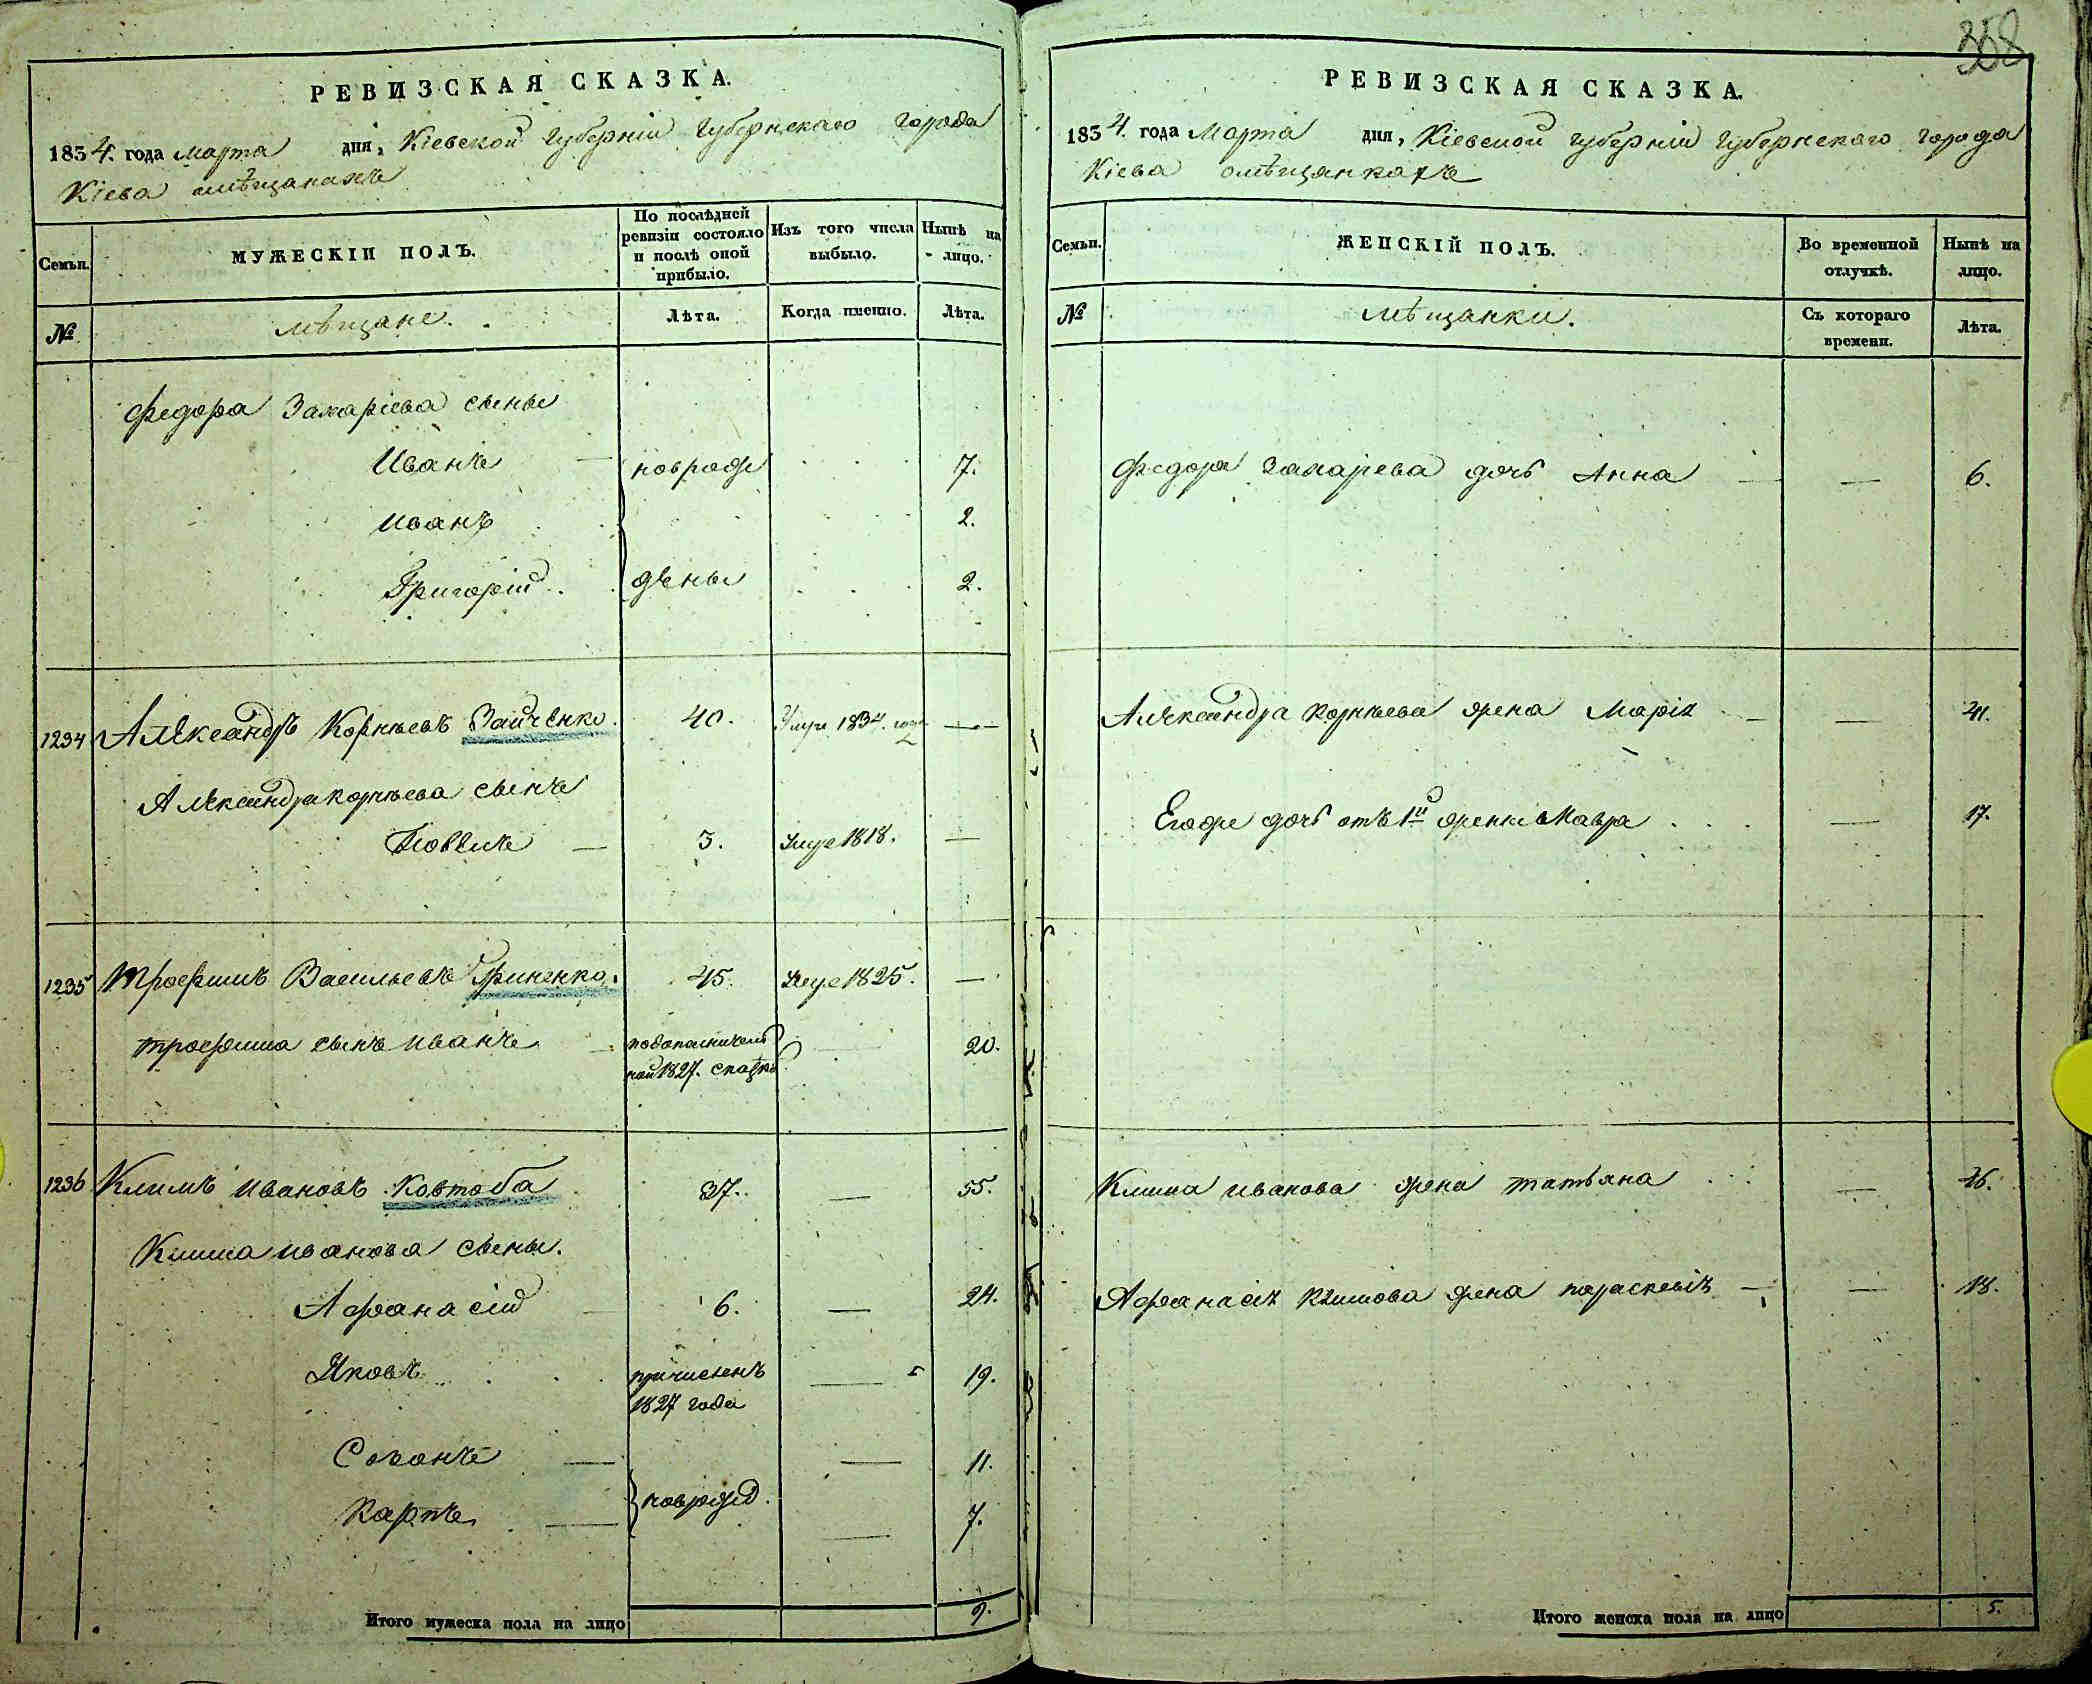 358
РЕВИЗСКАЯ СКАЗКА.
1834. года марта дня, Кіевской губерніи губернскаго города
Кіева омѣщанахъ
Семьи.
МУЖЕСКІЙ ПОЛЪ.
По послѣдней
ревизіи состояло
и послѣ оной
прибыло.
Изъ того числа
выбыло.
Нынѣ на
лицо.
№
мѣщане.
Лѣта.
Когда именно.
Лѣта.
Федора Захарьева сыны
Иванъ новрож 7.
Иванъ 2.
Григорій дены 2.
1234 Александръ Корнѣевъ Заиченко. 40. Умре 1834. года
Александра корнѣева сынъ
3. Умре 1818.
1235 Трофимъ Васильевъ Гриненко. 45. Умре 1825.
трофима сынъ иванъ подополнитель 20.
ной 1827. сказкѣ
1236 Климъ ивановъ Ковтоба 37. 55.
Клима иванова сыны.
Афанасій 6. 24.
Яковъ причисленъ 19.
1827 года
Созонъ 11.
новрожд.
Карпъ 7.
Итого мужеска пола на лицо 9.
РЕВИЗСКАЯ СКАЗКА.
1834. года Марта дня, Кіевской губерніи губернскаго города
Кіева омѣщанкахъ
Семьи.
ЖЕНСКІЙ ПОЛЪ.
Во временной
отлучкѣ.
Нынѣ на
лицо.
№
мѣщанки.
Съ котораго
времени.
Лѣта.
Федора Захарьева дочь Анна 6.
Александра Корнѣева жена Марія 41.
Егоже дочь отъ 1й жены Мавра 17.
Клима иванова жена татьяна 46.
Афанасія климова жена параскевія 18.
Итого женска пола на лицо 5.